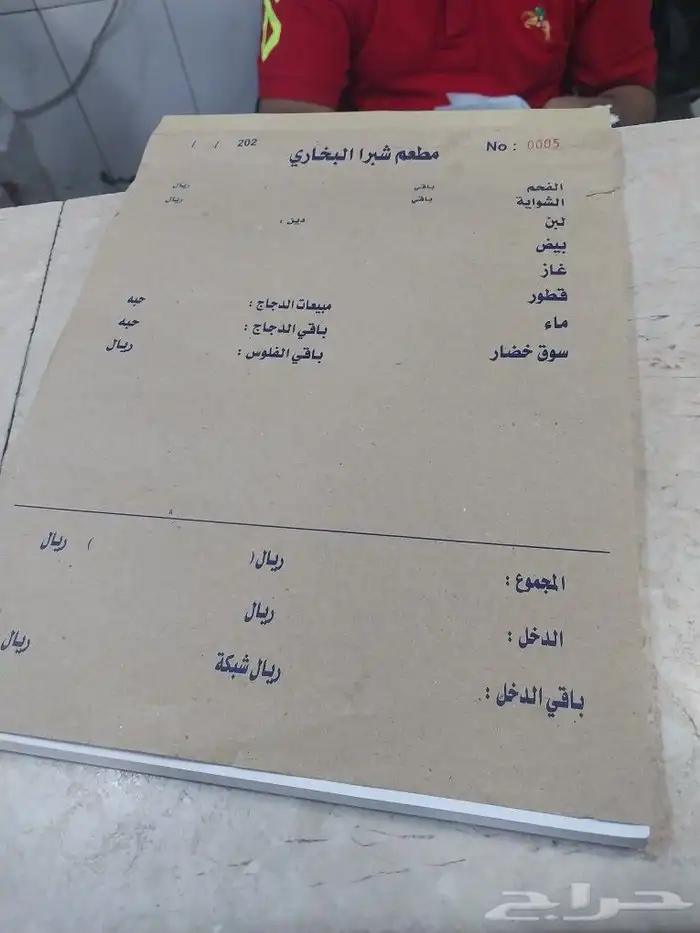 No : 0005 مطعم شبرا البخاري 202 / /
الفحم باقي ريال
الشواية باقي ريال
لبن دين :
بيض
غاز
قطور مبيعات الدجاج : حبه
ماء باقي الدجاج : حبه
سوق خضار باقي الفلوس : ريال
المجموع : ريال ( ) ريال
الدخل : ريال
باقي الدخل : ريال شبكة ريال
حراج